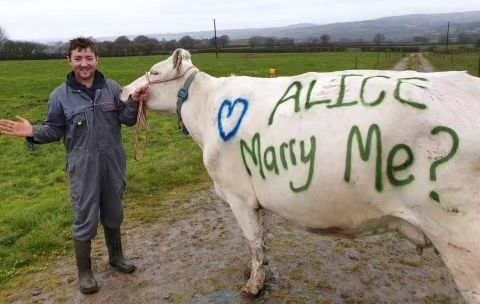 ALICE
Marry Me?